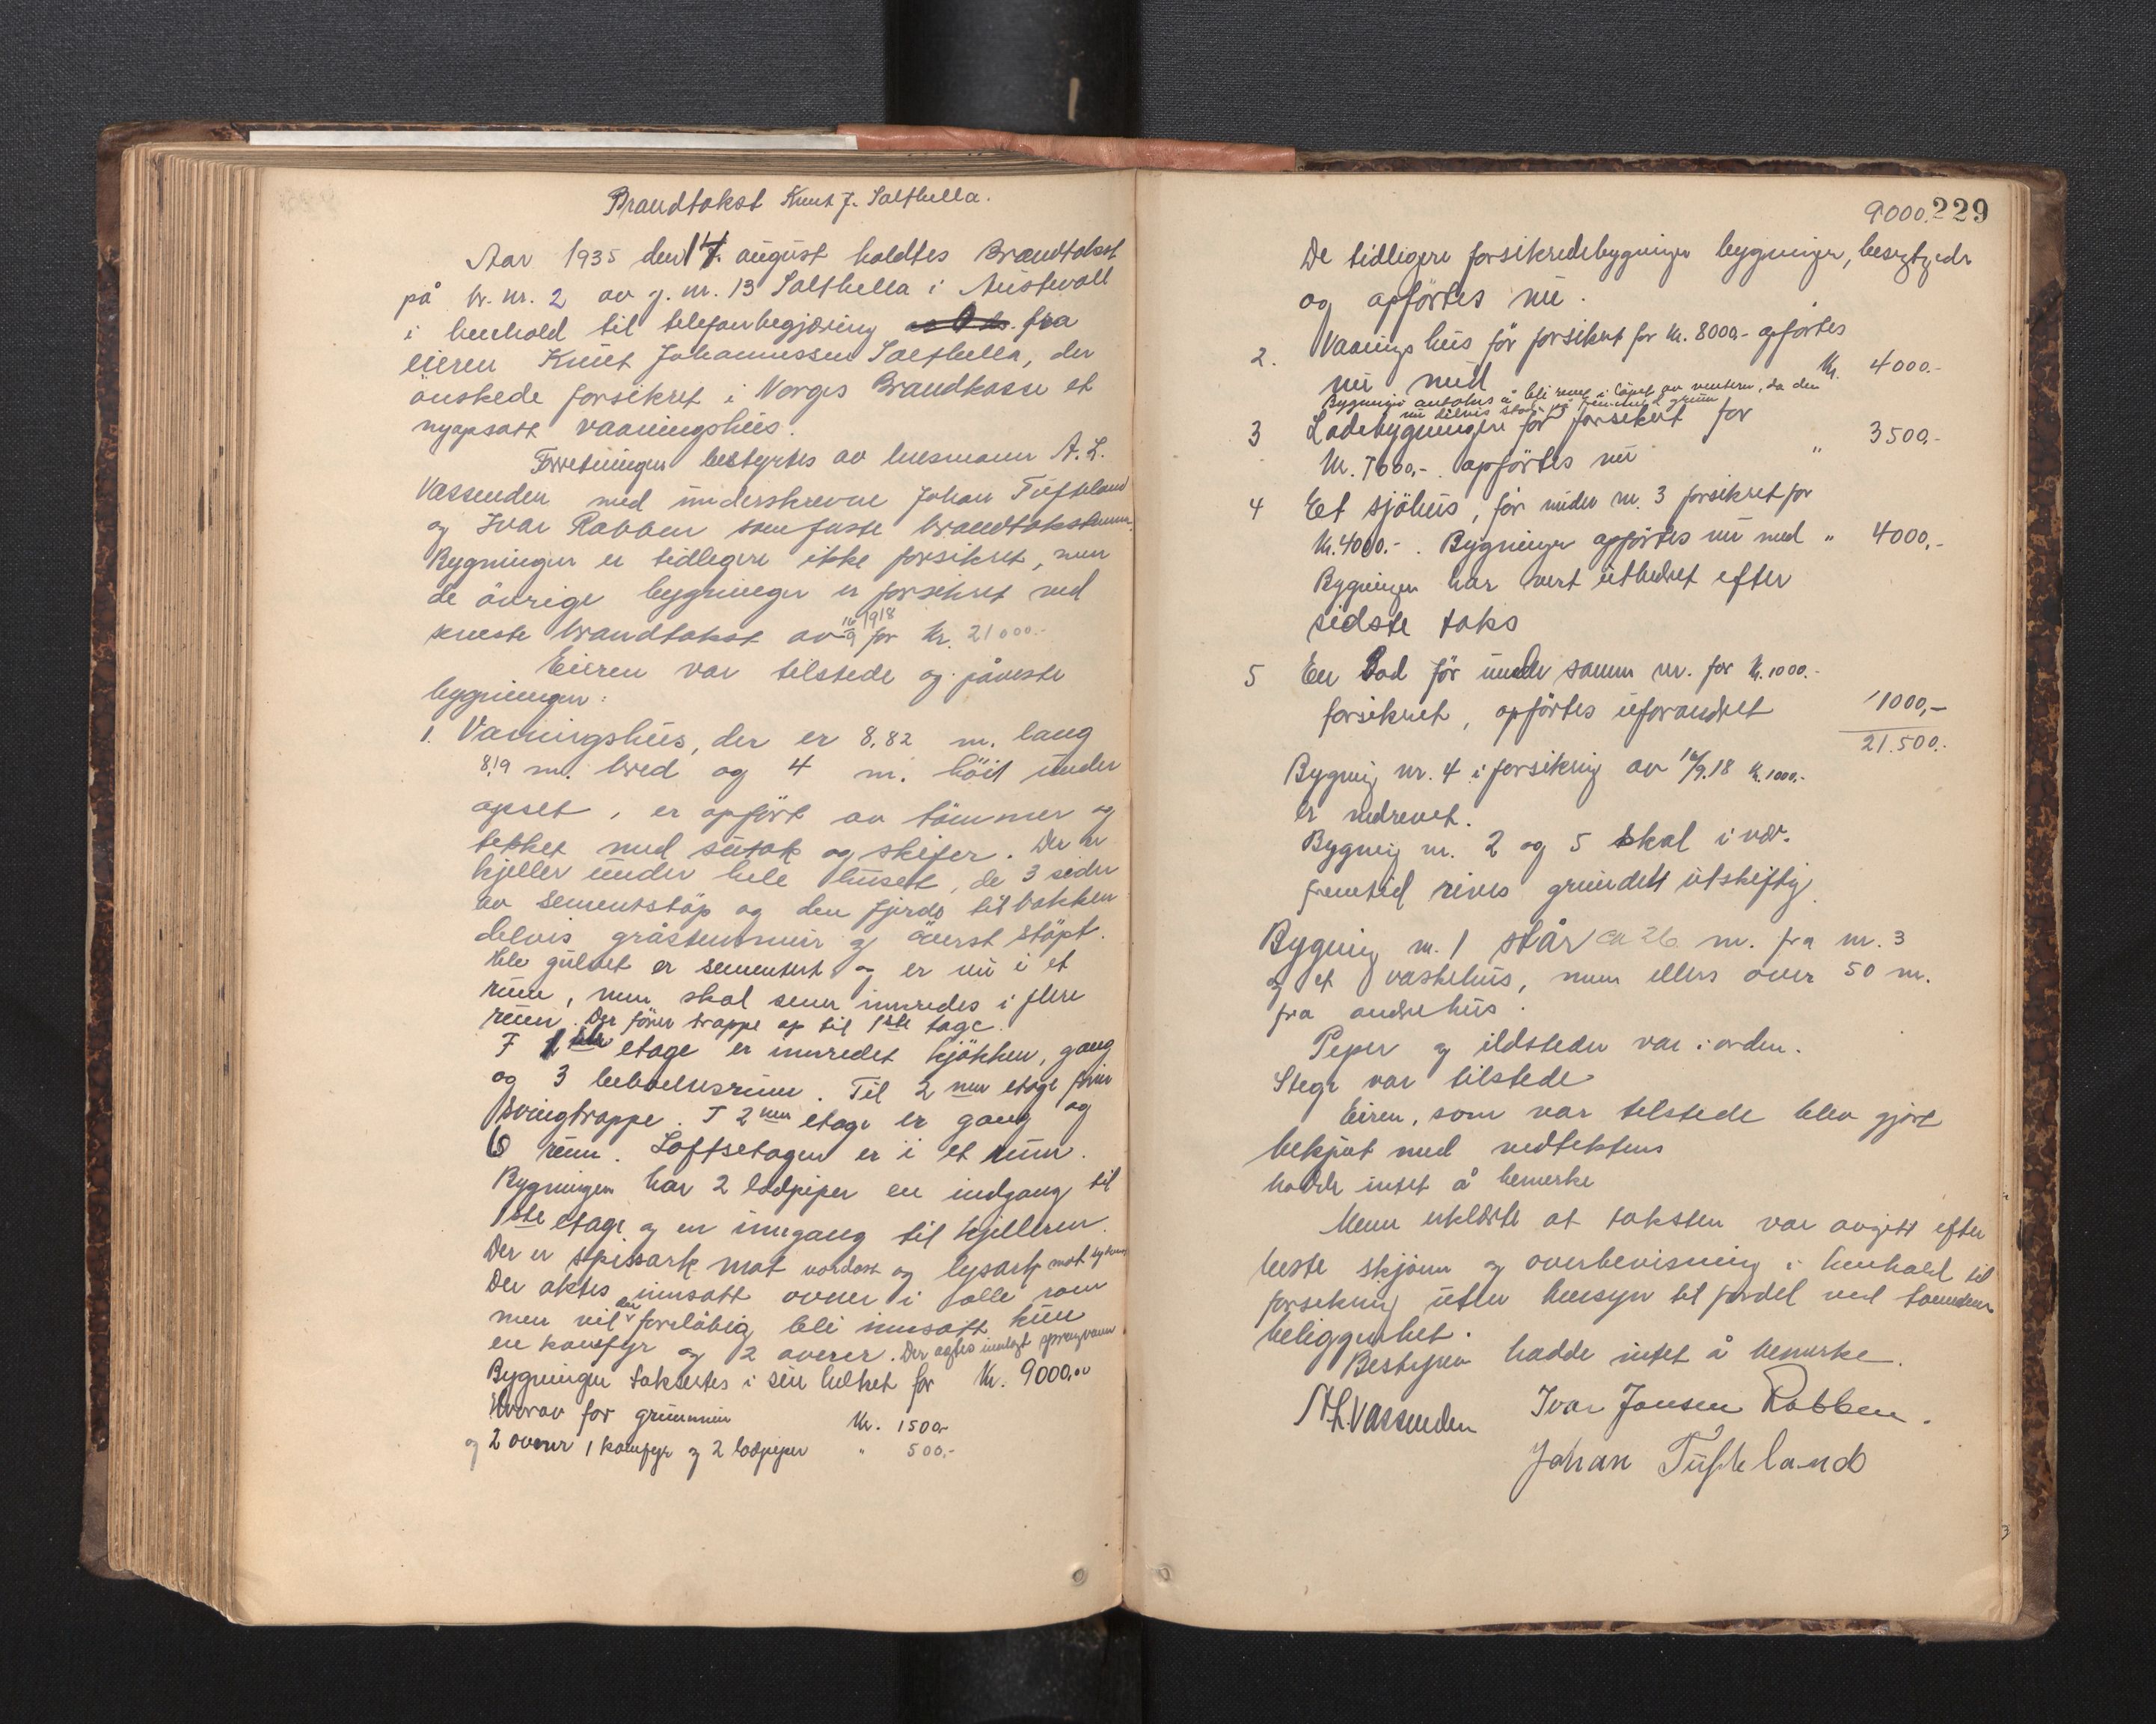 Brandtakst Knut J. Salthella.
Aar 1935 den 14. august holdtes Brandtakst
på br. nr. 2 av g. nr. 13 Salthella i Austevoll
i henhold til telefonbegjæring fra
eieren Knut Johannessen Salthella, der
önskede forsikret i Norges Brandkasse et
nyopsatt vaaningshus.
Forretningen bestyrtes av lensmann A. L.
Vassenden med underskrevne Johan Tufteland
og Ivar Rabben som faste brandtakstmenn.
Bygningen er tidligere ikke forsikret, men
de övrige bygninger er forsikret ved
seneste brandtakst av 16/9 1918 for Kr. 21000.-
Eieren var tilstede og påviste
bygningen:
1. Vaaningshus, der er 8,82 m. lang
8,19 m. bred og 4 m. höit under
opset, er opfört av tömmer og
tekket med sutak og skifer. Der er
kjeller under hele huset, de 3 sider
av sementstöp og den fjerde til bakken
delvis gråstensmur og överst stöpt.
Hele gulvet er sementert og er nu i et
rum, men skal senere innredes i flere
rum. Der förer trappe op til 1ste tage.
I 1ste etage er innredet kjökken, gang
og 3 beboelsesrum. Til 2 nen etage förer
svingtrappe. I 2nen etage er gang og
6 rum. Loftsetagen er i et rum.
Bygningen har 2 lodpiper en indgang til
1ste etage og en inngang til kjelleren.
Der er spissark mot nordost og lysark mot sydvest
Der aktes innsatt ovner i alle rom
men vil der foreløbig bli innsatt kun
en komfyr og 2 ovner. Der agtes innlagt springvann
Bygningen taksertes i sin helhet for Kr. 9000,00
Hvorav for grunnmur Kr. 1500,-
og 2 ovner 1 komfyr og 2 lodpiper " 500,-
9000. 229
De tidligere forsikredebygninger bygninger, besigtigedes
og opförtes nu.
2. Vaaningshus för forsikret for Kr. 8000,- opförtes
nu med Kr. 4000.-
Bygningen antakes å bli revet i löpet av vinteren, da den
nu delvis står på fremmed grunn
3 Ladebygningen för forsikret for
Kr. 7000,-. opförtes nu " 3500,-
4 Et sjöhus, för under nr. 3 forsikret for
Kr. 4000.-. Bygningen opförtes nu med " 4000,-
Bygningen har vert utbedret efter
sidste taks
5 En Bod för under samme nr. for Kr. 1000.-
forsikret, opförtes uforandret " 1000,-
21.500.-
Bygning nr. 4 i forsikring av 16/9.18 Kr. 1000,-
er nedrevet.
Bygning nr. 2 og 5 skal i nær-
fremtid rives grundet utskifting.
Bygning nr. 1 står ca 26 m. fra nr. 3
og et vaskehus, men ellers over 50 m.
fra andre hus.
Peper og ildsteder var i orden.
Stege var tilstede
Eieren, som var tilstede blev gjort
bekjent med vedtektens
hadde intet å bemerke
Menn erklærte at taksten var avgitt efter
beste skjönn og overbevisning i henhold til
forsikring uten hensyn til fordel ved tomtens
beliggenhet.
Bestyren hadde intet å bemerke.
A L. Vassenden Ivar Jansen Rabben.
Johan Tufteland